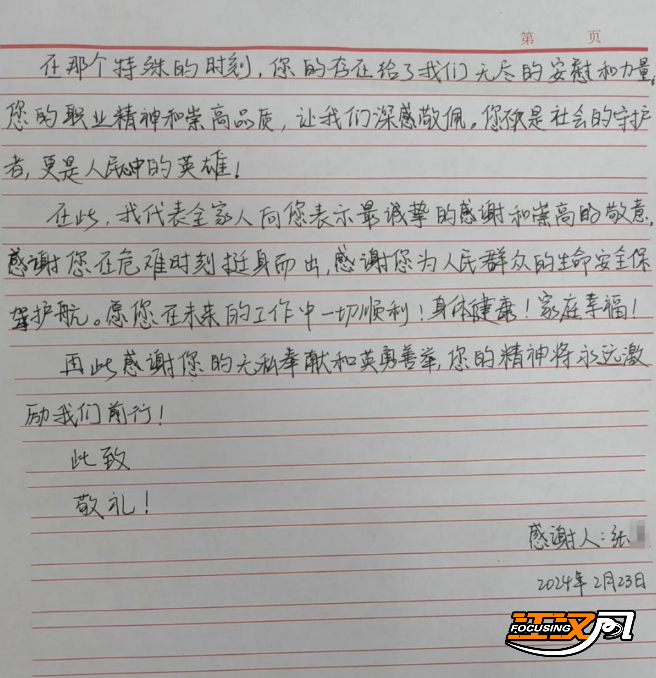 第 页
在那个特殊的时刻，您的存在给了我们无尽的安慰和力量。
您的职业精神和崇高品质，让我们深感敬佩。您不仅是社会的守护
者，更是人民心中的英雄！
在此，我代表全家人向您表示最诚挚的感谢和崇高的敬意，
感谢您在危难时刻挺身而出，感谢您为人民群众的生命安全保
驾护航。愿您在未来的工作中一切顺利！身体健康！家庭幸福！
再此感谢您的无私奉献和英勇善举，您的精神将永远激
励我们前行！
此致
敬礼！
感谢人：张
2024年2月23日
江汉网
FOCUSING